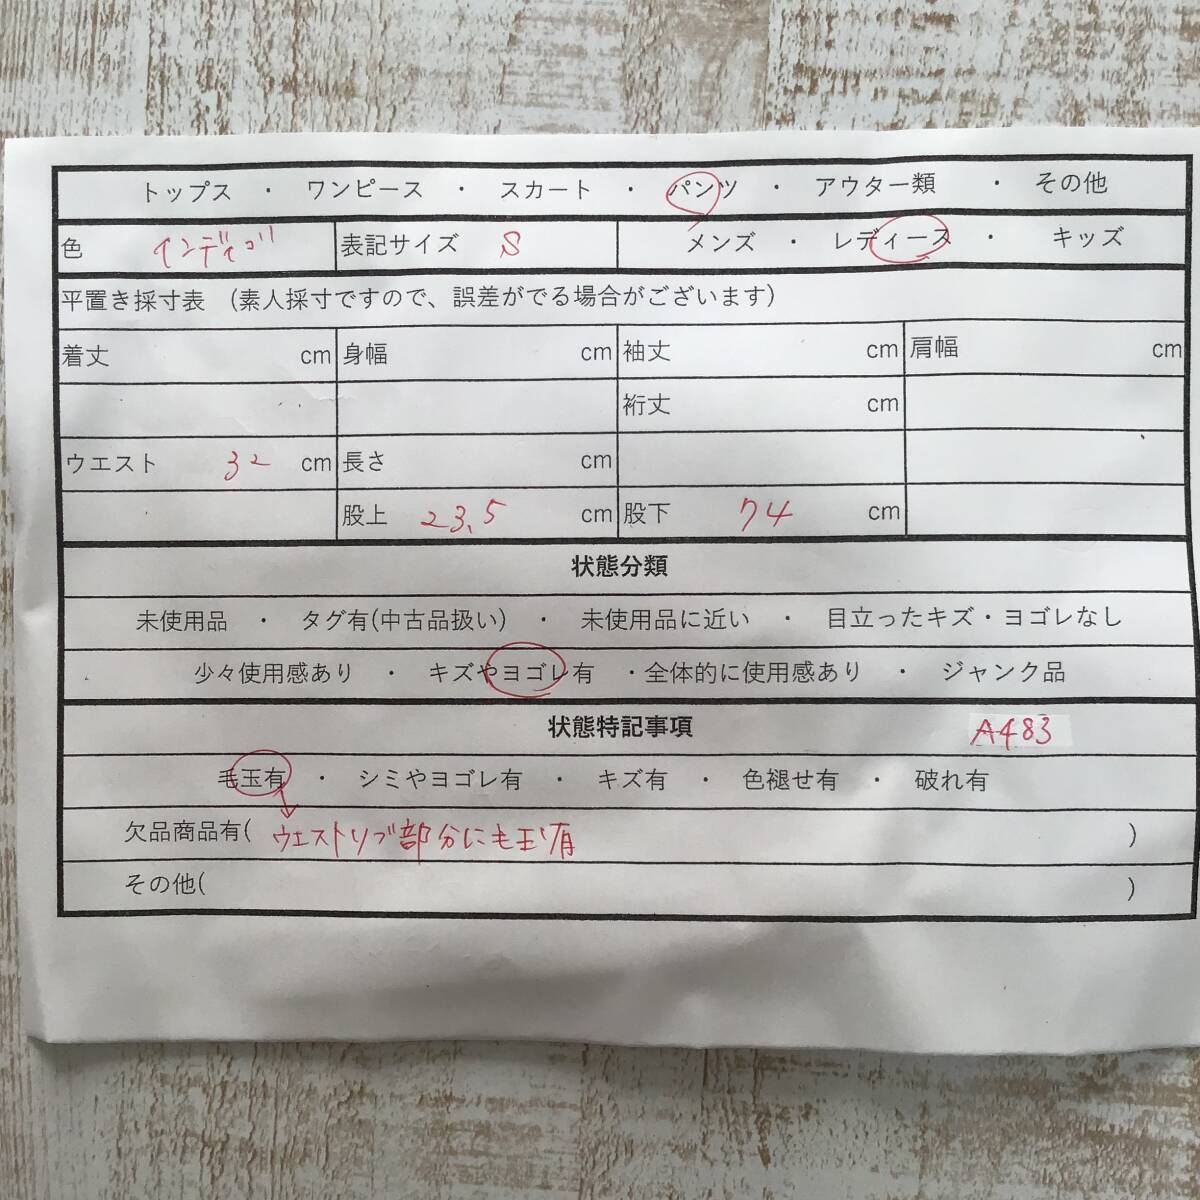 トップス ・ ワンピース ・ スカート ・ パンツ ・ アウター類 ・ その他
色 インディゴ 表記サイズ S メンズ ・ レディース ・ キッズ
平置き採寸表 (素人採寸ですので、誤差がでる場合がございます)
着丈 cm 身幅 cm 袖丈 cm 肩幅 cm
裄丈 cm
ウエスト 32 cm 長さ cm
股上 23.5 cm 股下 74 cm
状態分類
未使用品 ・ タグ有(中古品扱い) ・ 未使用品に近い ・ 目立ったキズ・ヨゴレなし
少々使用感あり ・ キズやヨゴレ有 ・全体的に使用感あり ・ ジャンク品
状態特記事項 A483
毛玉有 ・ シミやヨゴレ有 ・ キズ有 ・ 色褪せ有 ・ 破れ有
欠品商品有( ウエストリブ部分にも玉有 )
その他( )